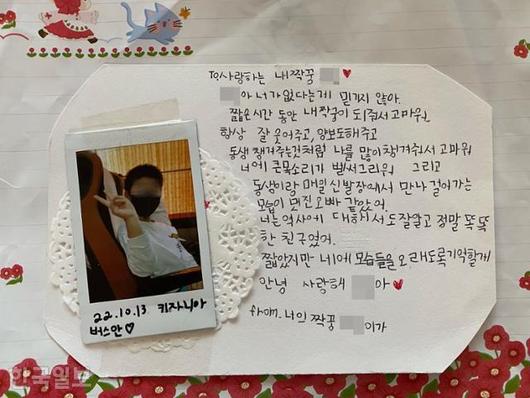 To. 사랑하는 내짝꿍 ♥
아 너가 없다는게 믿기지 않아.
짧은시간 동안 내짝궁이 되줘서 고마워
항상 잘 웃어주고, 양보도해주고
동생 챙겨주는것처럼 나를 많이챙겨줘서 고마워
너에 큰목소리가 벌써그리워 그리고
동생이랑 매일 신발장에서 만나 걸어가는
모습이 멋진오빠 같았어.
너는역사에 대해서도잘알고 정말 똑똑
한 친구였어.
짧았지만 네에 모습들을 오래도록기억할게
안녕 사랑해 아♥
from. 너의 짝꿍 이가
22.10.13 키자니아
버스안♡
한국일보